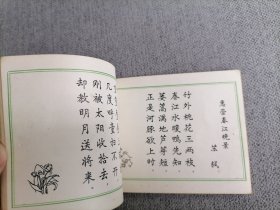 惠崇春江晚景
苏轼
竹外桃花三两枝，
春江水暖鸭先知。
蒌蒿满地芦芽短，
正是河豚欲上时。
几度呼童扫不开。
刚被太阳收拾去，
却教明月送将来。